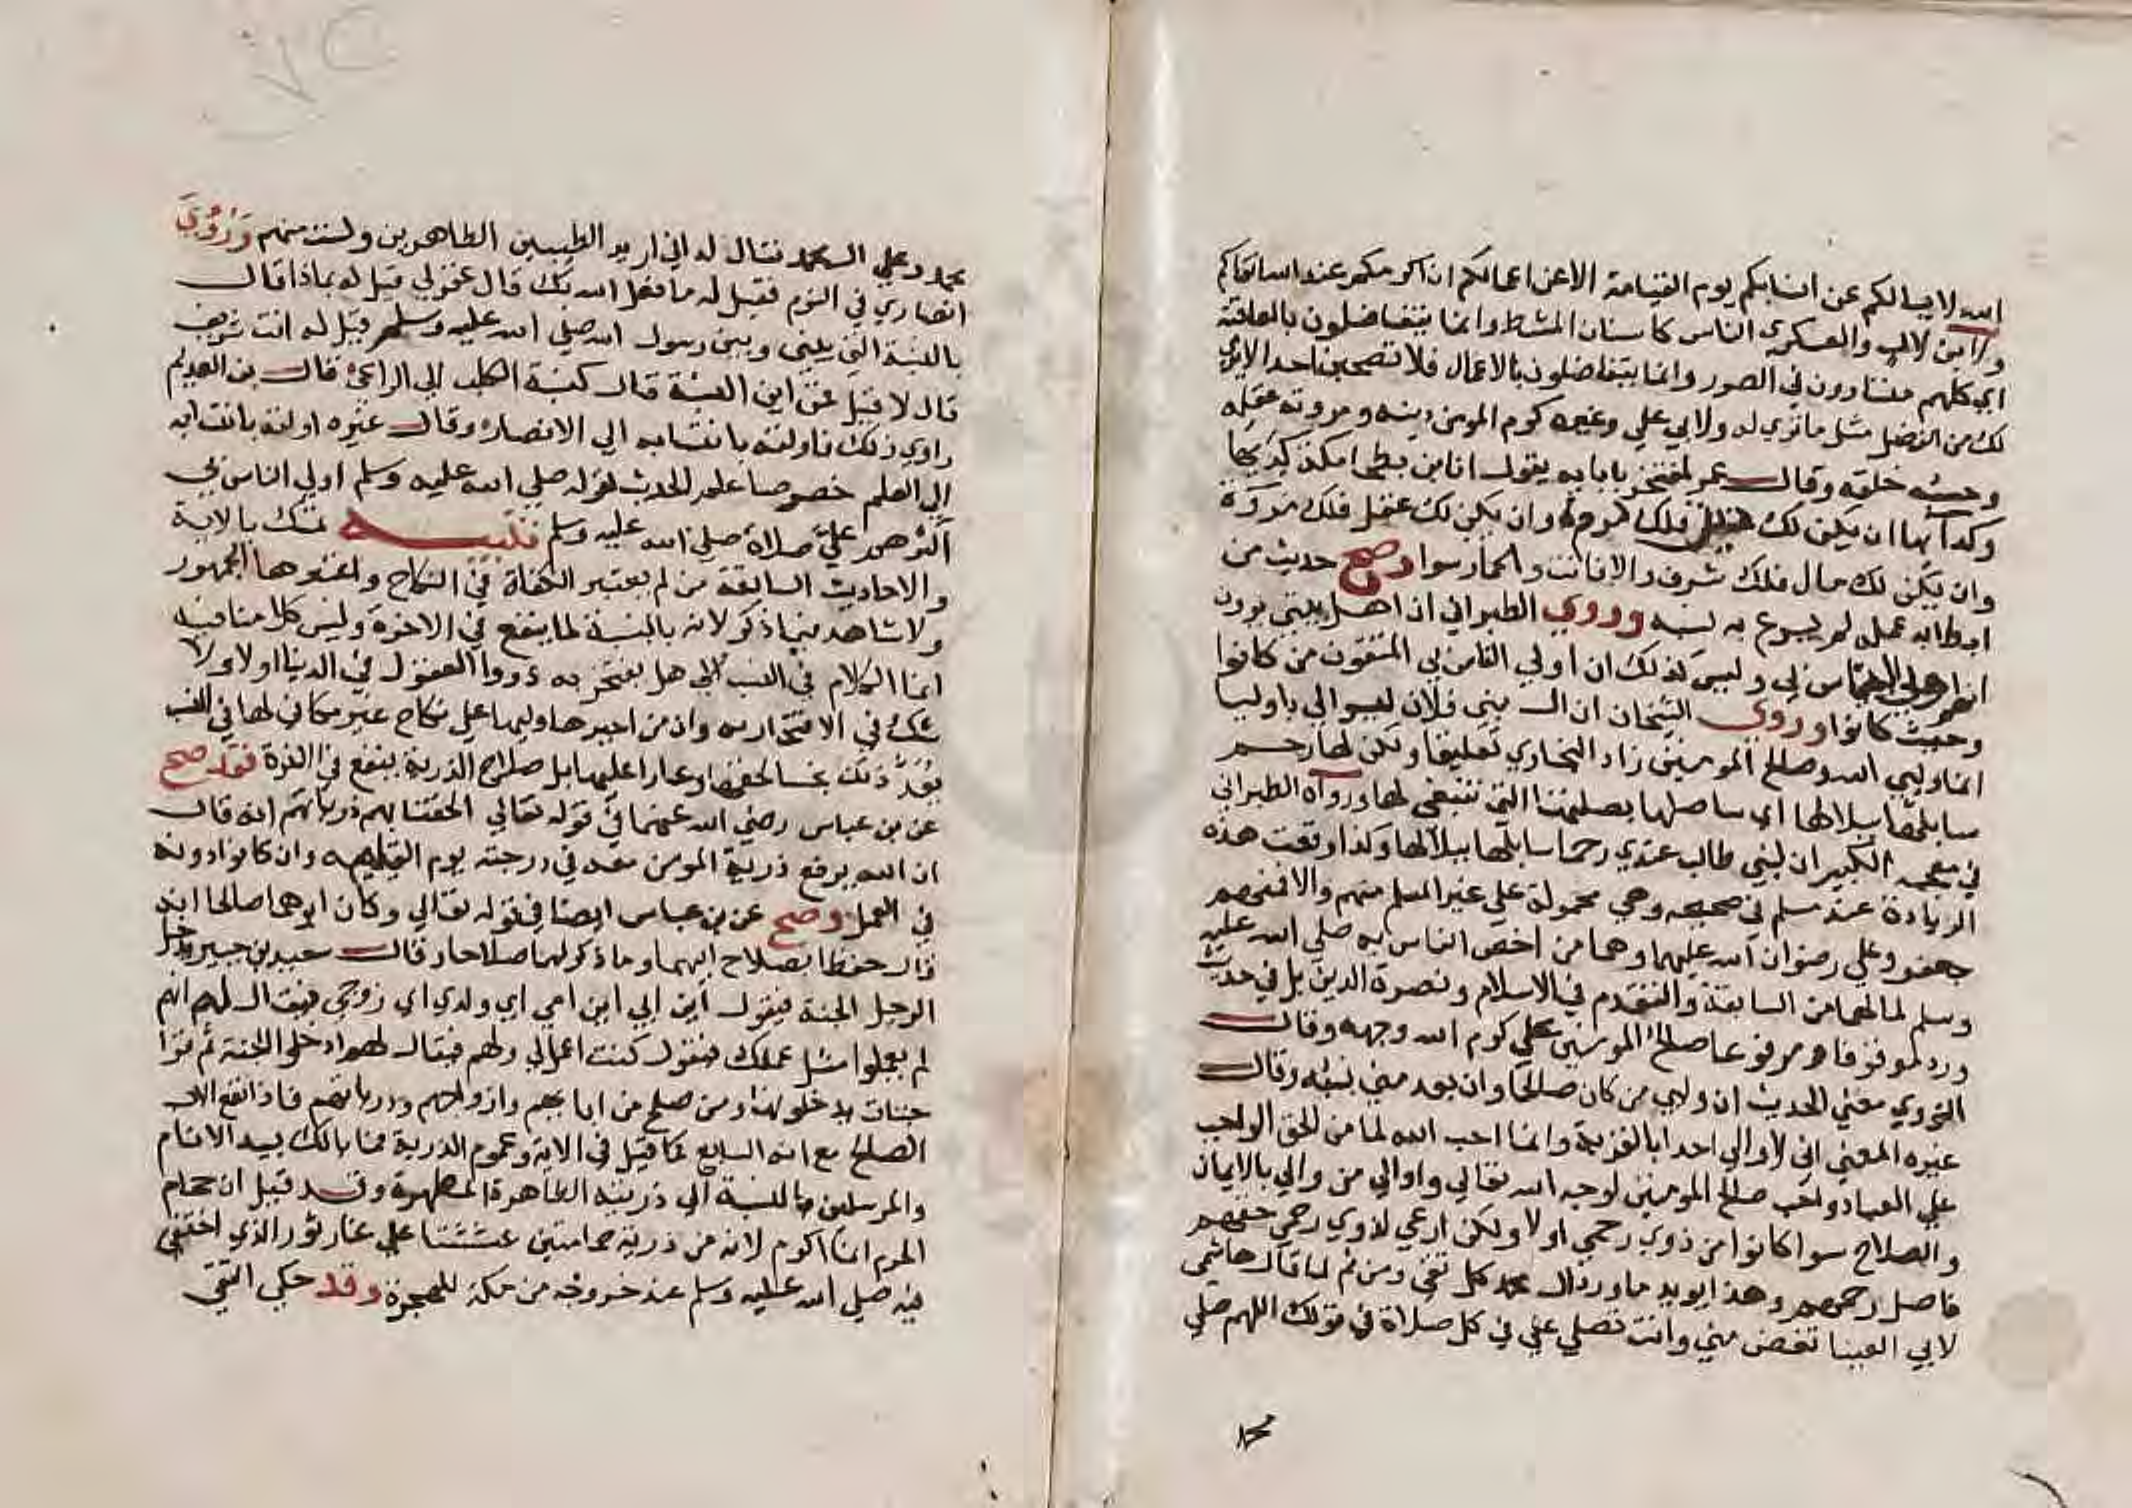 الله لا يسالكم عن انسابكم يوم القيامة الا عن اعمالكم ان اكرمكم عند الله اتقاكم
ولابن لال والعسكري الناس كاسنان المشط وانما يتفاضلون بالعافية
اي كلهم متساوون في الصور وانما يتفاضلون بالاعمال فلا تصحبن احدا لا يري
لك من الفضل مثل ما تري له ولابي علي وغيره كرم المومن دينه ومروته عقله
وحسبه خلقه وقال عمر لمفتخر بابايه يقول انا ابن بطحا مكة كديها
وكداها ان يكن لك فلك وان يكن لك عقل فلك مروة
وان يكن لك مال فلك شرف والا فانت والحمار سوا وصح حديث من
ابطا به عمله لم يسرع به نسبه وروي الطبراني ان اهل بيتي يرون
انهم اولي الناس بي وليس كذلك ان اولي الناس بي المتقون من كانوا
وحيث كانوا وروي الشيخان ان ال بني فلان ليسوا لي باوليا
انما وليي الله وصالح المومنين زاد البخاري تعليقا ولكن لها رحم
سابلها ببلالها اي ساصلها بصلتها التي تنبغي لها ورواه الطبراني
في معجمه الكبير ان لبني طالب عندي رحما سابلها ببلالها وكذا وقعت هذه
الزيادة عند مسلم في صحيحه وهي محمولة علي غير المسلم منهم والا فمنهم
جعفر وعلي رضوان الله عليهما وهما من اخص الناس به صلي الله عليه
وسلم لما لهما من السابقة والتقدم في الاسلام ونصرة الدين بل في حديث
ورد موقوفا ومرفوعا صالح المومنين علي كرم الله وجهه وقال
النووي معني الحديث ان وليي من كان صالحا وان بعد مني نسبه وقال
غيره المعني اني لا اوالي احدا بالقرابة وانما احب الله لما من الحق الواجب
علي العباد واحب صالح المومنين لوجه الله تعالي واوالي من والي بالايمان
والصلاح سوا كانوا من ذوي رحمي اولا ولكن ارعي لذوي رحمي حقهم
فاصل رحمهم وهذا يويد ما ورد ال محمد كل تقي ومن ثم لما قال هاشمي
لابي العينا تغض مني وانت تصلي علي في كل صلاة في قولك اللهم صلي
محمد
محمد وعلي ال محمد فقال له اني اريد الطيبين الطاهرين ولست منهم وروي
انصاري في النوم فقيل له ما فعل الله بك قال غفر لي قيل له بماذا قال
بالنسبة التي بيني وبين رسول الله صلي الله عليه وسلم قيل له انت شريف
قال لا قيل فمن اين النسبة قال كنسبة الكلب الي الراعي قال بن العديم
راوي ذلك فاولته بانتسابه الي الانصار وقال غيره اولته بانتسابه
الي العلم خصوصا علم الحديث لقوله صلي الله عليه وسلم اولي الناس بي
اكثرهم علي صلاة صلي الله عليه وسلم تنبيه تمسك بالاية
والاحاديث السابقة من لم يعتبر الكفاة في النكاح واعتبرها الجمهور
ولا شاهد فيما ذكر لانه بالنسبة لما ينفع في الاخرة وليس كلامنا فيه
انما الكلام في النسب الي هل يفتخر به ذووا العقول في الدنيا اولا ولا
شك في الافتخار به وان من اجبرها وليها علي نكاح غير مكافي لها في النسب
يعد ذلك بخسا لحقها وعارا عليها بل صلاح الذرية ينفع في الذرة فقد صح
عن بن عباس رضي الله عنهما في قوله تعالي الحقنا بهم ذرياتهم انه قال
ان الله يرفع ذرية المومن معه في درجته يوم القيامة وان كانوا دونه
في العمل وصح عن بن عباس ايضا في قوله تعالي وكان ابوهما صالحا انه
قال حفظا بصلاح ابيهما وما ذكر لهما صلاحا وقال سعيد بن جبير يدخل
الرجل الجنة فيقول اين ابي اين امي اي ولدي اي زوجي فيقال لهم انهم
لم يعملوا مثل عملك فيقول كنت اعمل لي ولهم فيقال لهم ادخلوا الجنة ثم قرا
جنات يدخلونها ومن صلح من اباىهم وازواجهم وذرياتهم فاذا نفع الاب
الصالح مع انه السابع كما قيل في الاية وعموم الذرية فما بالك بسيد الانام
والمرسلين بالنسبة الي ذريته الطاهرة المطهرة وقد قيل ان حمام
الحرم انما اكرم لانه من ذرية حمامتين عششتا علي غار ثور الذي اختفي
فيه صلي الله عليه وسلم عند خروجه من مكة للهجرة وقد حكي التقي